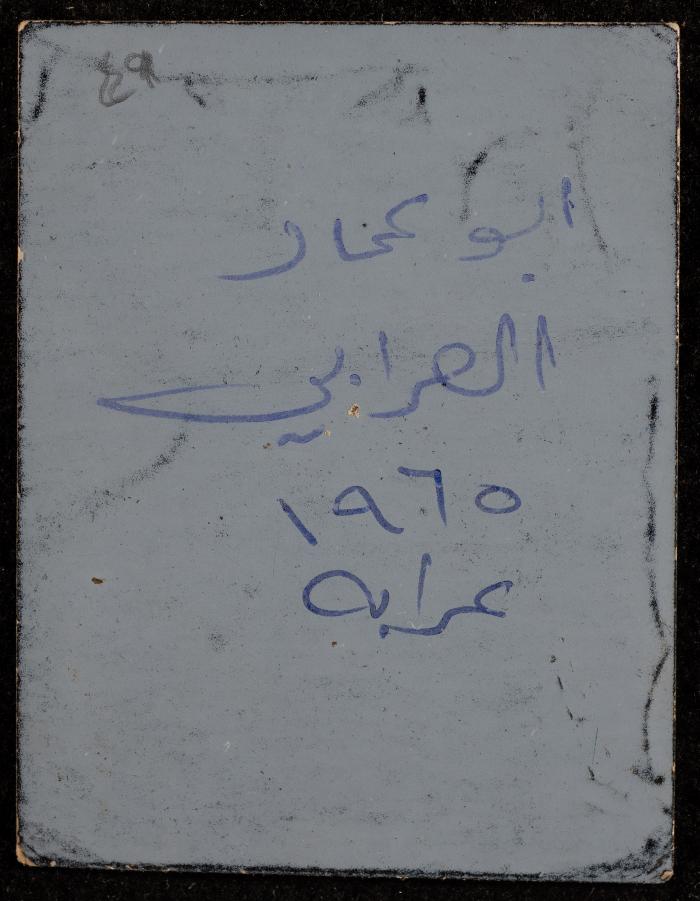 ٤٩
ابو عماد
العرابي
١٩٦٥
عرابه